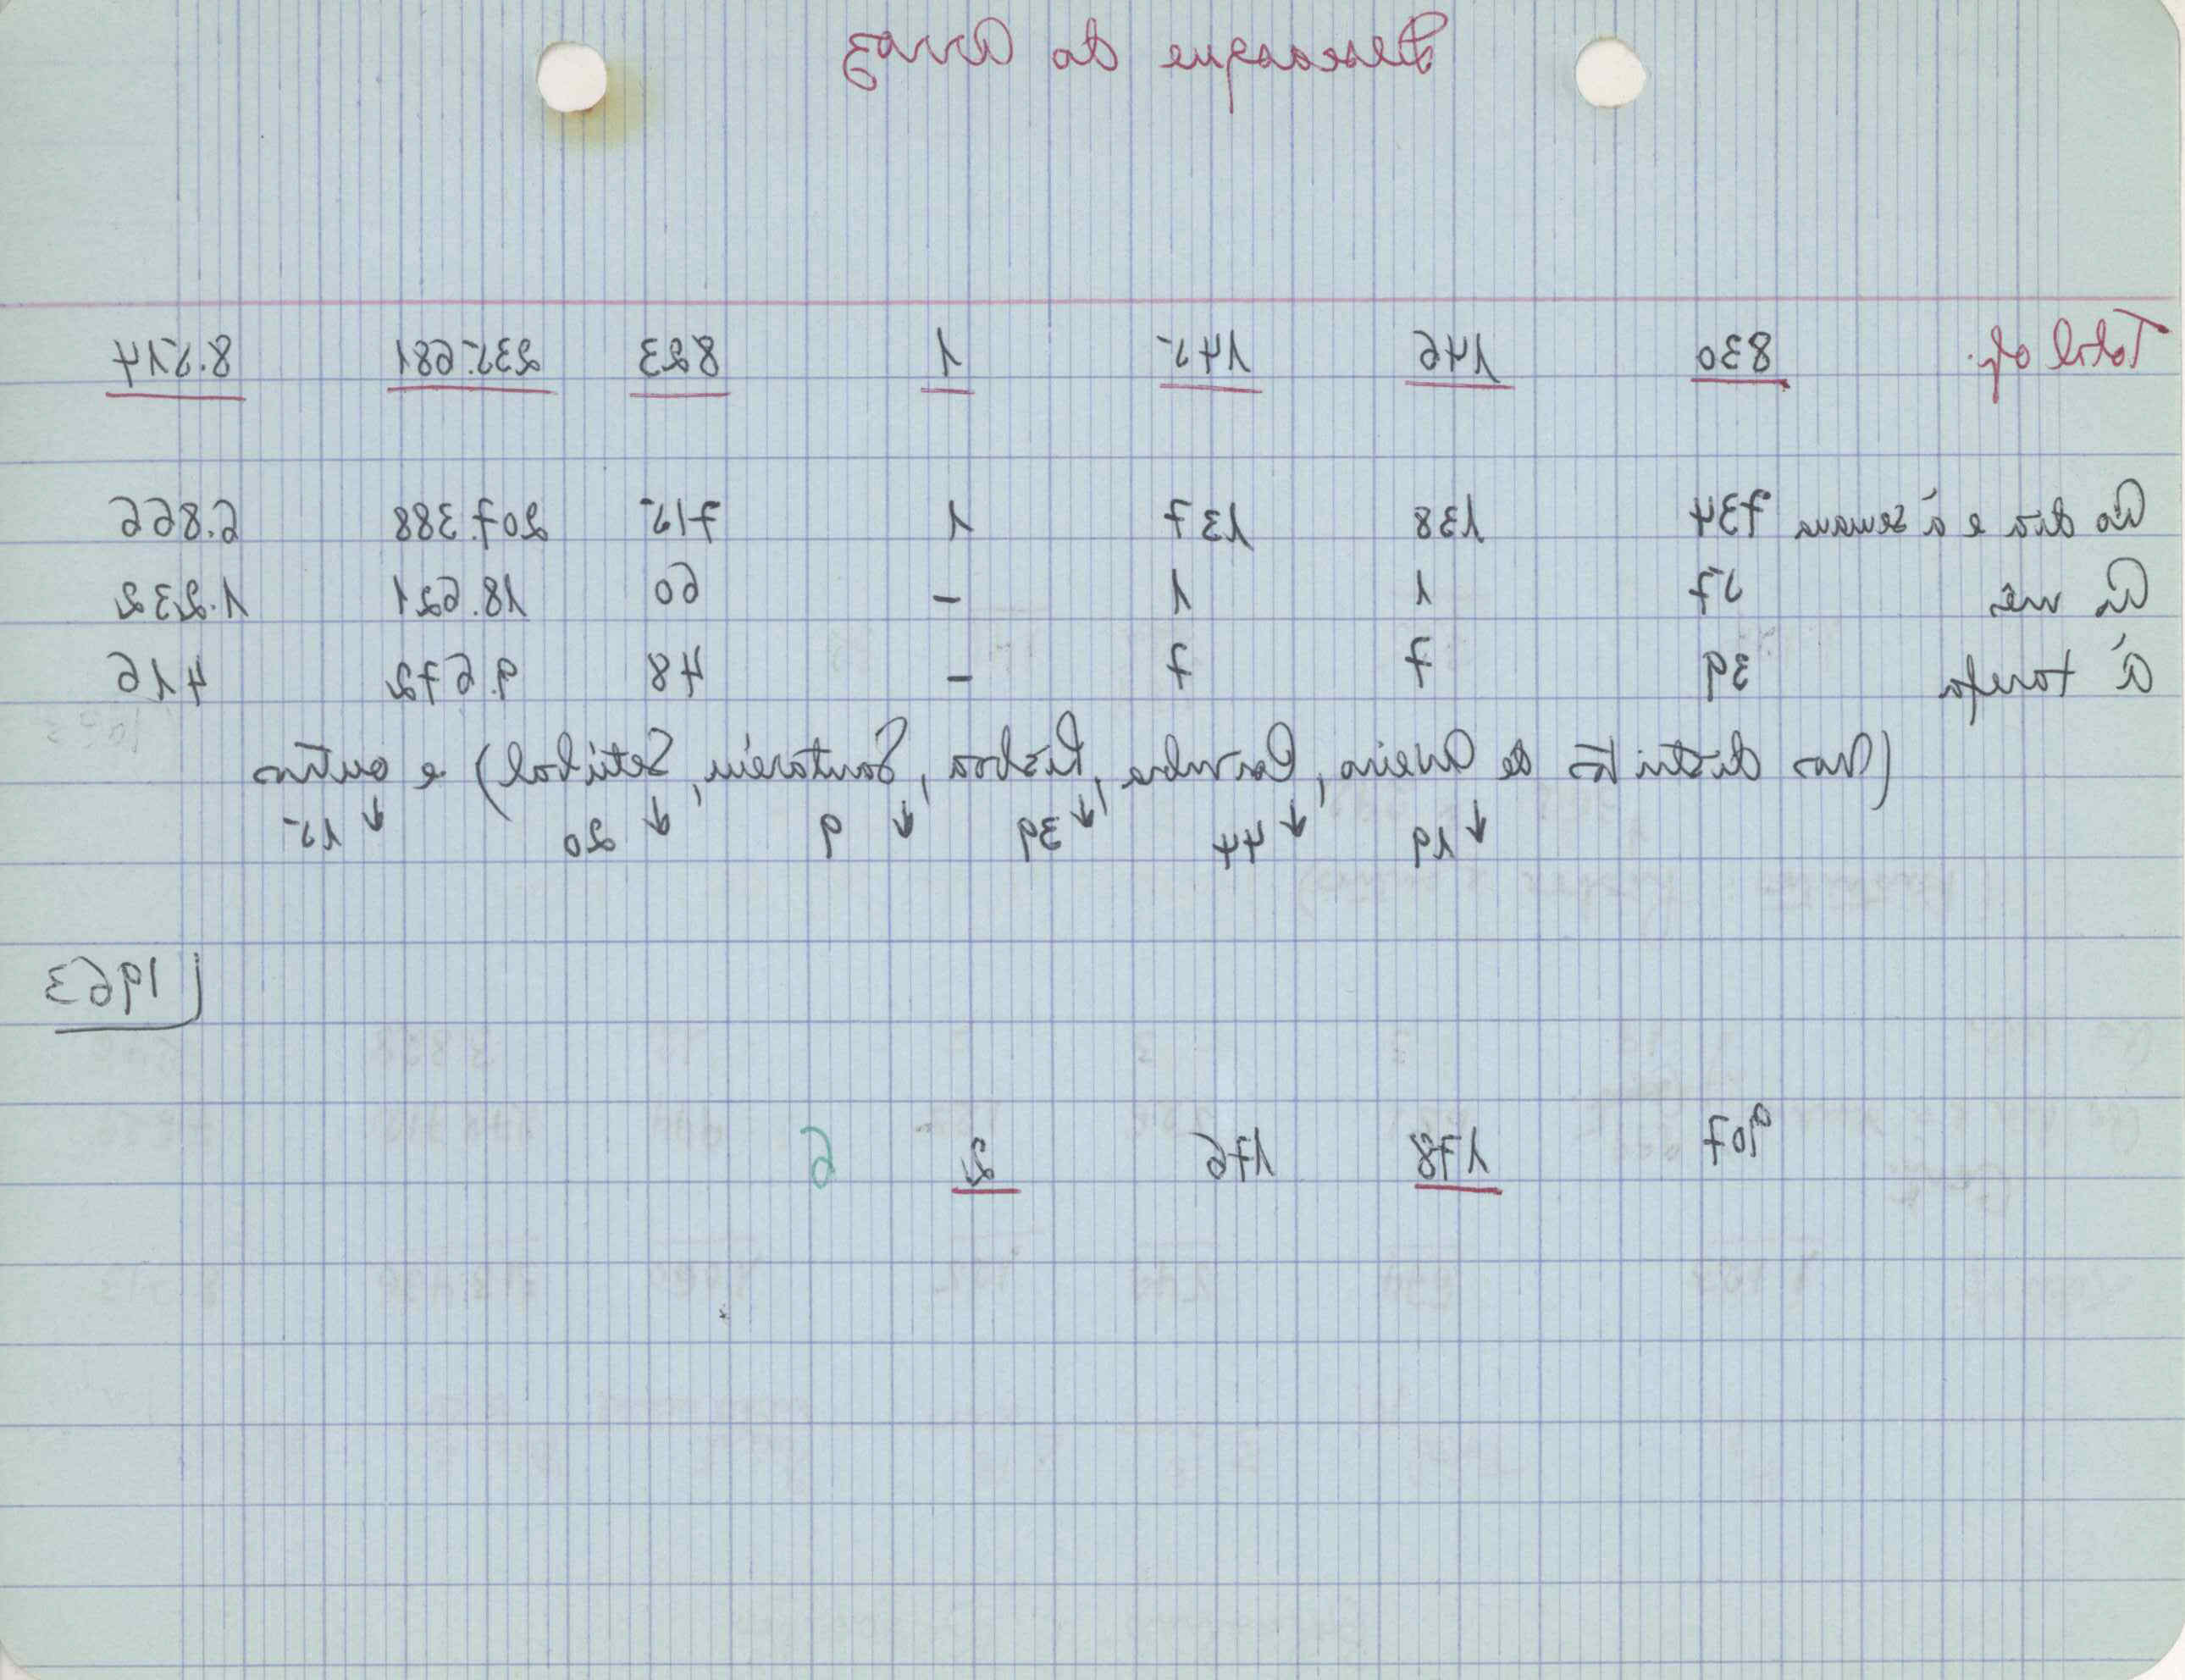 Descasque do Arroz
Total op. 830 146 145 1 823 235.681 8.514
Ao dia e à semana 734 138 137 1 715 207.388 6.866
Ao mês 57 1 1 - 60 18.621 1.232
À tarefa 39 7 7 - 48 9.672 416
(Nos distritos de Aveiro, Coimbra, Lisboa, Santarém, Setúbal) e outros
↓ 19 ↓ 44 ↓ 39 ↓ 9 ↓ 20 ↓ 15
1963
907 178 176 2 6